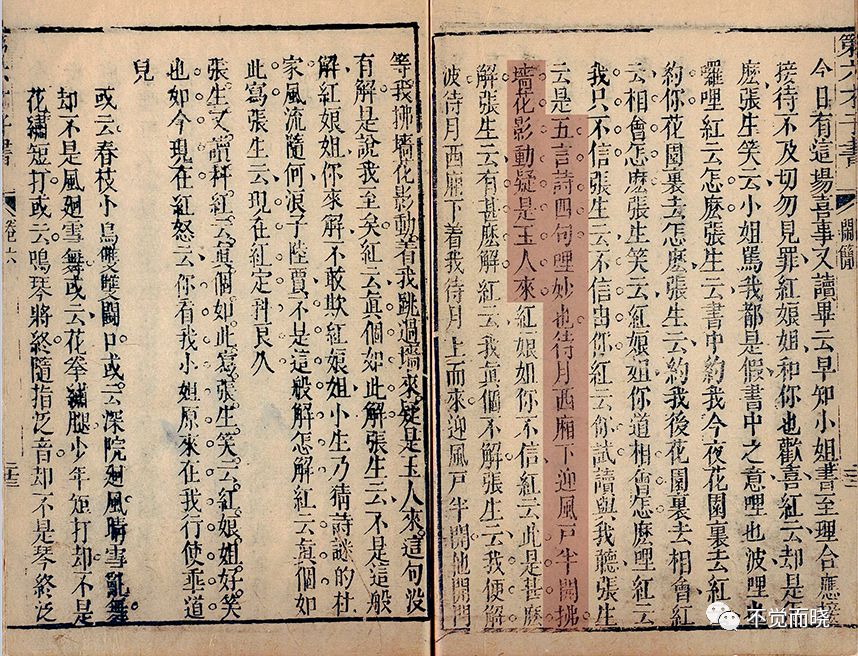 第六才子書
鬧簡
今日有這場喜事又讀畢云早知小姐書至理合應接
接待不及切勿見罪紅娘姐和你也歡喜紅云却是
麽張生笑云小姐罵我都是假書中之意哩也波哩
囉哩紅云怎麽張生云書中約我今夜花園裏去紅
約你花園裏去怎麽張生云約我後花園裏去相會紅
云相會怎麽張生笑云紅娘姐你道相會怎麽哩紅云
我只不信張生云不信由你紅云你試讀與我聽張生
云是五言詩四句哩妙也待月西廂下迎風戶半開拂
墻花影動疑是玉人來紅娘姐你不信紅云此是甚麽
解張生云有甚麽解紅云我真個不解張生云我便解
波待月西廂下着我待月上而來迎風戶半開他開門
等我拂墻花影動着我跳過墻來疑是玉人來這句沒
有解是說我至矣紅云真個如此解張生云不是這般
解紅娘姐你來解不敢欺紅娘姐小生乃猜詩謎的杜
家風流隨何浪子陸賈不是這般解怎解紅云真個如
此寫張生云現在紅定科良久
張生又讀科紅云真個如此寫張生笑云紅娘姐好笑
也如今現在紅怒云你看我小姐原來在我行使乖道
兒
或云春枝小鳥雙雙鬪口或云深院迴風晴雪亂舞
却不是風迴雪舞或云花拳繡腿少年短打却不是
花繡短打或云鳴琴將終隨指泛音却不是琴終泛
卷六
二十三
不觉而晓